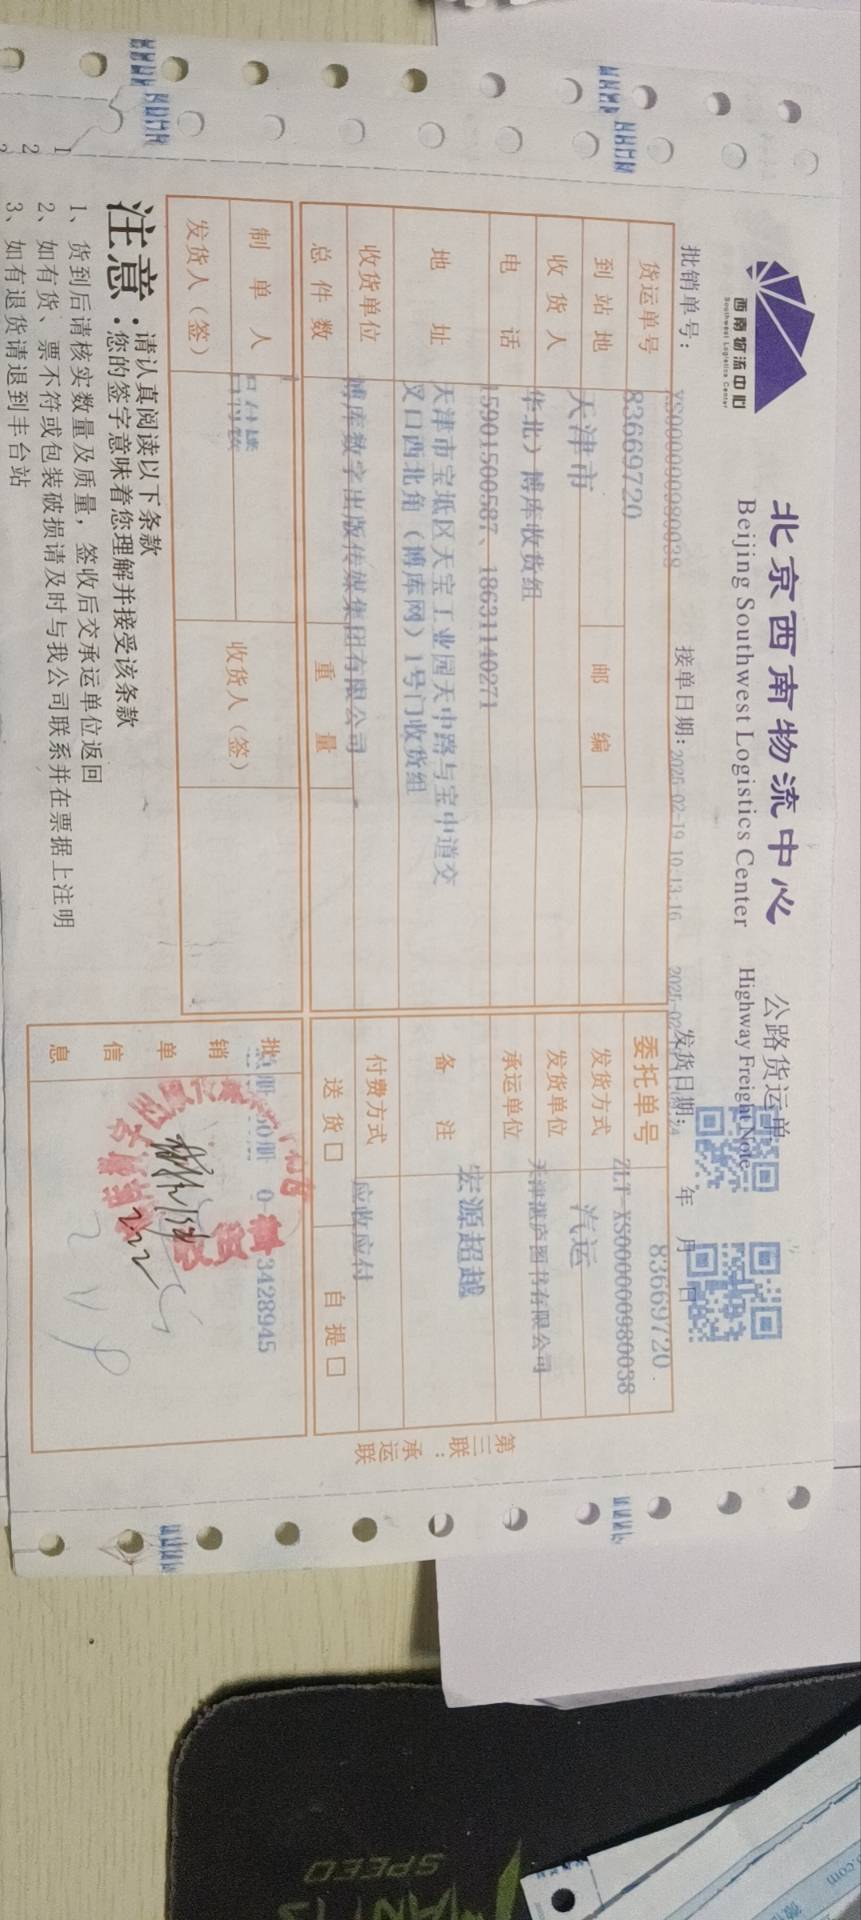 西南物流中心
Southwest Logistics Center
北京西南物流中心 公路货运单
Beijing Southwest Logistics Center Highway Freight Note
批销单号: XS000000980038 接单日期: 2025-02-19 10:13:16 发货日期: 年 月 日
货运单号 83669720 委托单号 83669720
ZLT-XS000000980038
到站地 天津市 邮编 发货方式 汽运
收货人 华北）博库收货组 发货单位 图书有限公司
电话 15901500587、18631140271 承运单位 宏源超越
地址 天津市宝坻区天宝工业园天中路与宝中道交
叉口西北角（博库网）1号门收货组
备注
收货单位 博库数字出版传媒集团有限公司 付费方式 应收应付
总件数 重量 送货□ 自提□
制单人 收货人（签）
发货人（签）
批销单信息 3428945
第三联：承运联
注意：请认真阅读以下条款
您的签字意味着您理解并接受该条款
1、货到后请核实数量及质量，签收后交承运单位返回
2、如有货、票不符或包装破损请及时与我公司联系并在票据上注明
3、如有退货请退到丰台站
1
2
SPEED